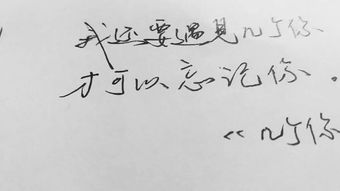 我还要遇见几个你
才可以忘记你。
《几个你